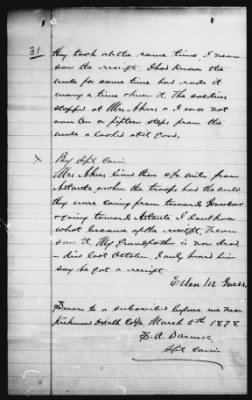 31 they took at the same time. I never
saw the receipt. I had known the
mule for some time had rode it
many a time & knew it. The soldiers
stopped at Mrs Akers & I was not
more ten or fifteen steps from the
mule & looked at it good.
x By Spl. Com.
Mrs Akers lived then six miles from
Atlanta, when the troops had the mule
they were coming from towards
& going towards Atlanta. I don't know
what became of the receipt, never
saw it. My Grandfather is now dead
- died last October. I only heard him
say he got a receipt.
Ellen M
Sworn to & subscribed before me near
March 5th 1878
Spl. Com.